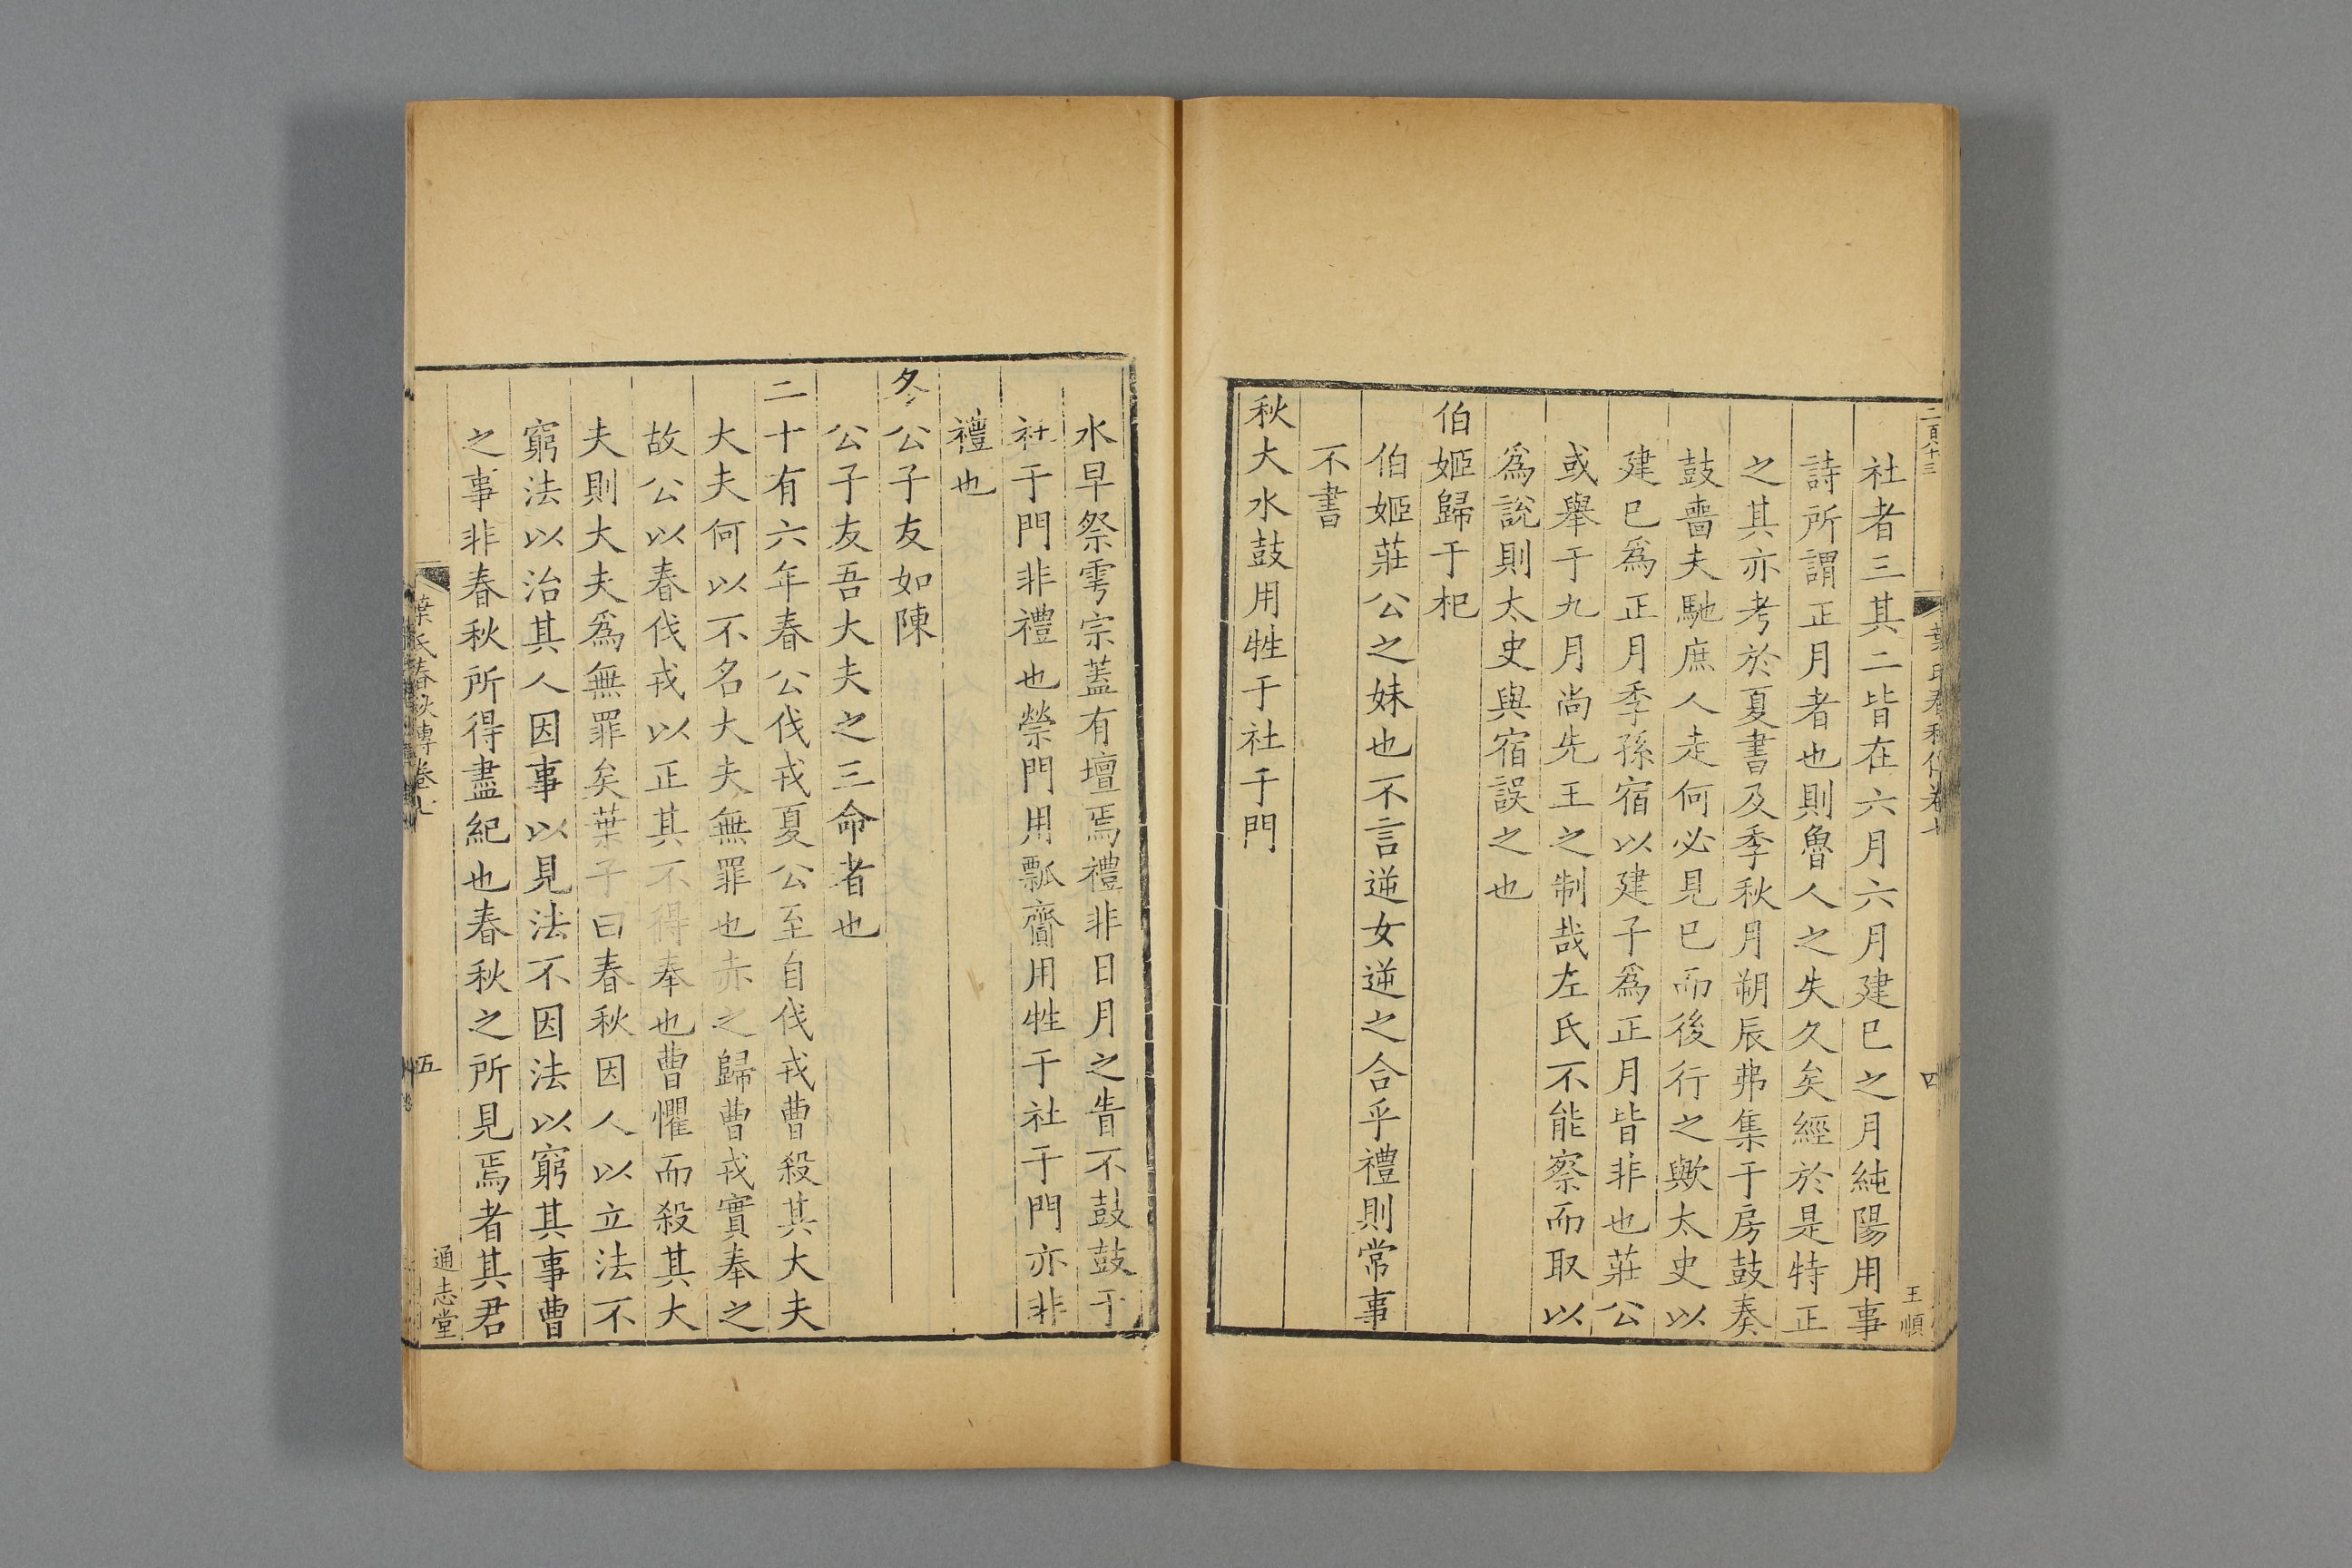 二百八十三
社者三其二皆在六月六月建巳之月純陽用事
詩所謂正月者也則魯人之失久矣經於是特正
之其亦考於夏書及季秋月朔辰弗集于房鼓奏
鼓嗇夫馳庶人走何必見巳而後行之歟太史以
建巳爲正月季孫宿以建子爲正月皆非也莊公
或舉于九月尚先王之制哉左氏不能察而取以
爲說則太史與宿誤之也
伯姬歸于杞
伯姬莊公之妹也不言逆女逆之合乎禮則常事
不書
秋大水鼓用牲于社于門
葉氏春秋傳卷七
四
王順
水旱祭雩宗蓋有壇焉禮非日月之眚不鼓鼓于
社于門非禮也禜門用瓢齎用牲于社于門亦非
禮也
冬公子友如陳
公子友吾大夫之三命者也
二十有六年春公伐戎夏公至自伐戎曹殺其大夫
大夫何以不名大夫無罪也赤之歸曹戎實奉之
故公以春伐戎以正其不得奉也曹懼而殺其大
夫則大夫爲無罪矣葉子曰春秋因人以立法不
窮法以治其人因事以見法不因法以窮其事曹
之事非春秋所得盡紀也春秋之所見焉者其君
葉氏春秋傳卷七
五
通志堂